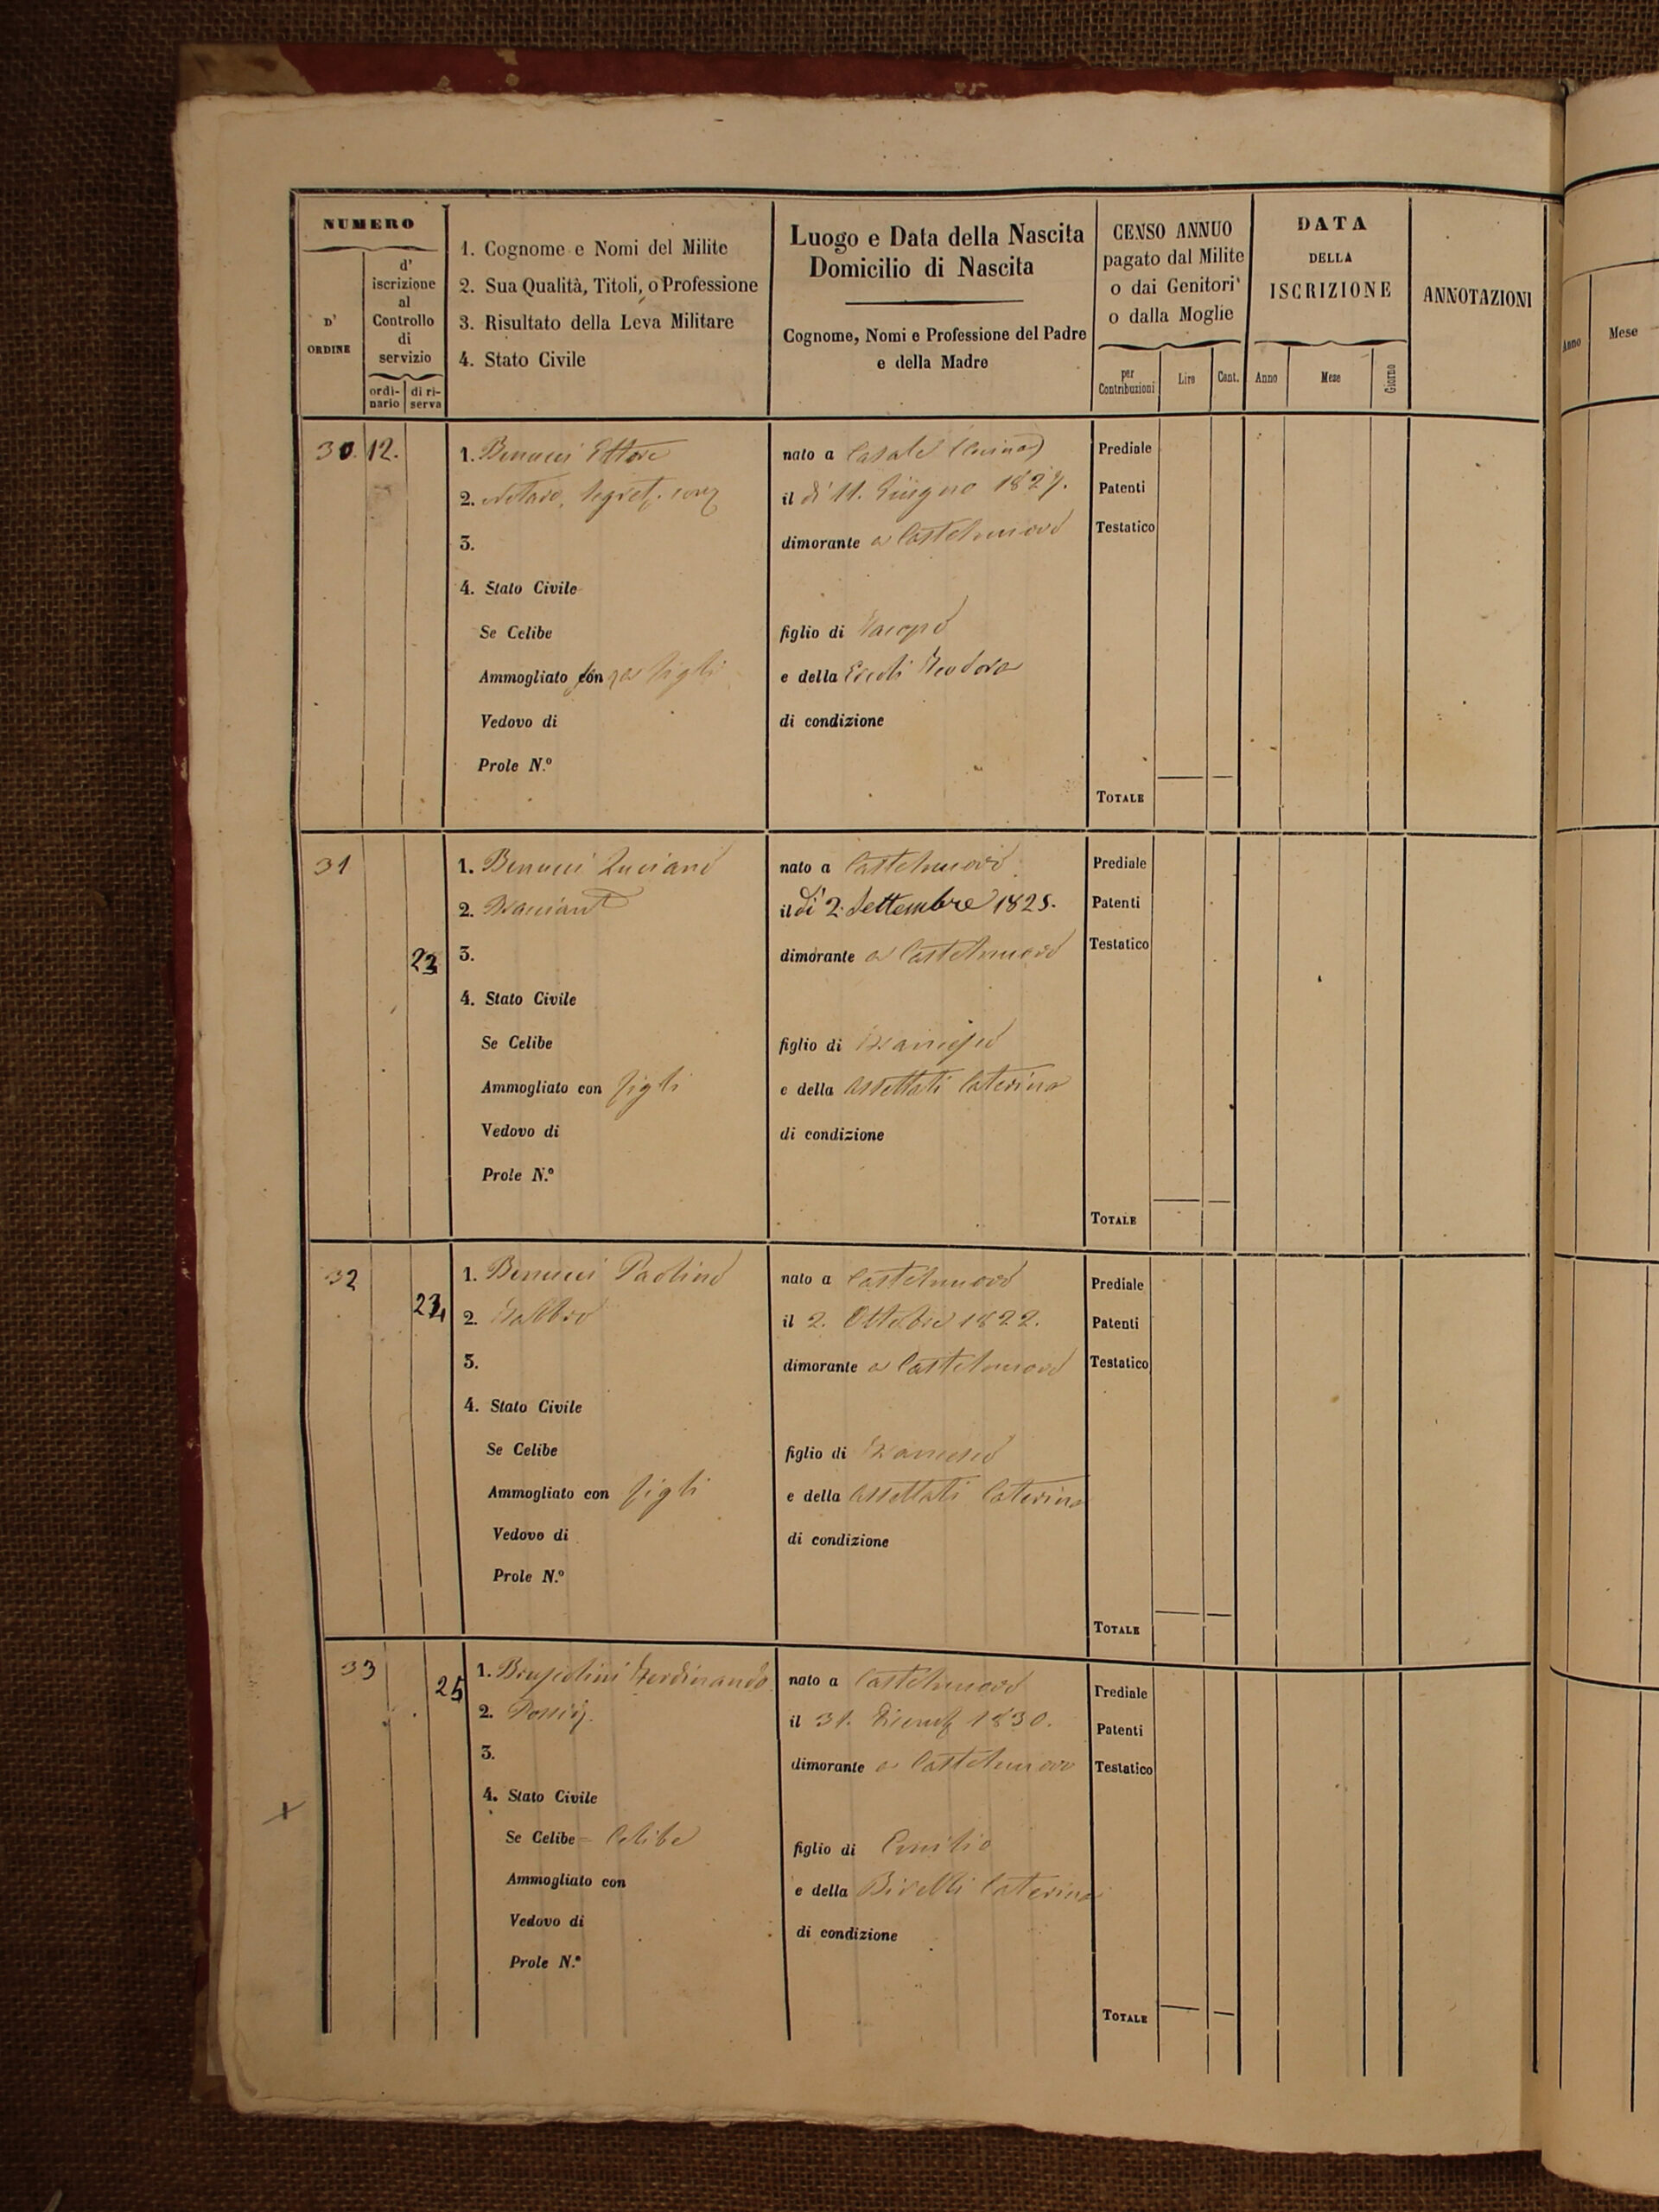 NUMERO
D' ORDINE
d' iscrizione al Controllo di servizio
ordinario
di riserva
1. Cognome e Nomi del Milite
2. Sua Qualità, Titoli, o Professione
3. Risultato della Leva Militare
4. Stato Civile
Luogo e Data della Nascita
Domicilio di Nascita
Cognome, Nomi e Professione del Padre
e della Madre
CENSO ANNUO
pagato dal Milite
o dai Genitori
o dalla Moglie
per Contribuzioni
Lire
Cent.
DATA
DELLA
ISCRIZIONE
Anno
Mese
Giorno
ANNOTAZIONI
Anno
Mese
30. 12.
1. Benucci Ettore
2. Notaro, Segret.
3.
4. Stato Civile
Se Celibe
Ammogliato senza figli
Vedovo di
Prole N.º
nato a Casale
il dì 11. Giugno 1827.
dimorante a Castelnuovo
figlio di Jacopo
e della Teodora
di condizione
Prediale
Patenti
Testatico
TOTALE
31
23
1. Benucci Luciano
2.
3.
4. Stato Civile
Se Celibe
Ammogliato con figli
Vedovo di
Prole N.º
nato a Castelnuovo
il dì 2. Settembre 1825.
dimorante a Castelnuovo
figlio di Francesco
e della Assettati Caterina
di condizione
Prediale
Patenti
Testatico
TOTALE
32
24
1. Benucci Paolino
2. Fabbro
3.
4. Stato Civile
Se Celibe
Ammogliato con figli
Vedovo di
Prole N.º
nato a Castelnuovo
il 2. Ottobre 1822.
dimorante a Castelnuovo
figlio di Francesco
e della Assettati Caterina
di condizione
Prediale
Patenti
Testatico
TOTALE
33
25
1. Ferdinando
2. Possid.
3.
4. Stato Civile
Se Celibe = Celibe
Ammogliato con
Vedovo di
Prole N.º
nato a Castelnuovo
il 31. 1830.
dimorante a Castelnuovo
figlio di Emilio
e della Caterina
di condizione
Prediale
Patenti
Testatico
TOTALE